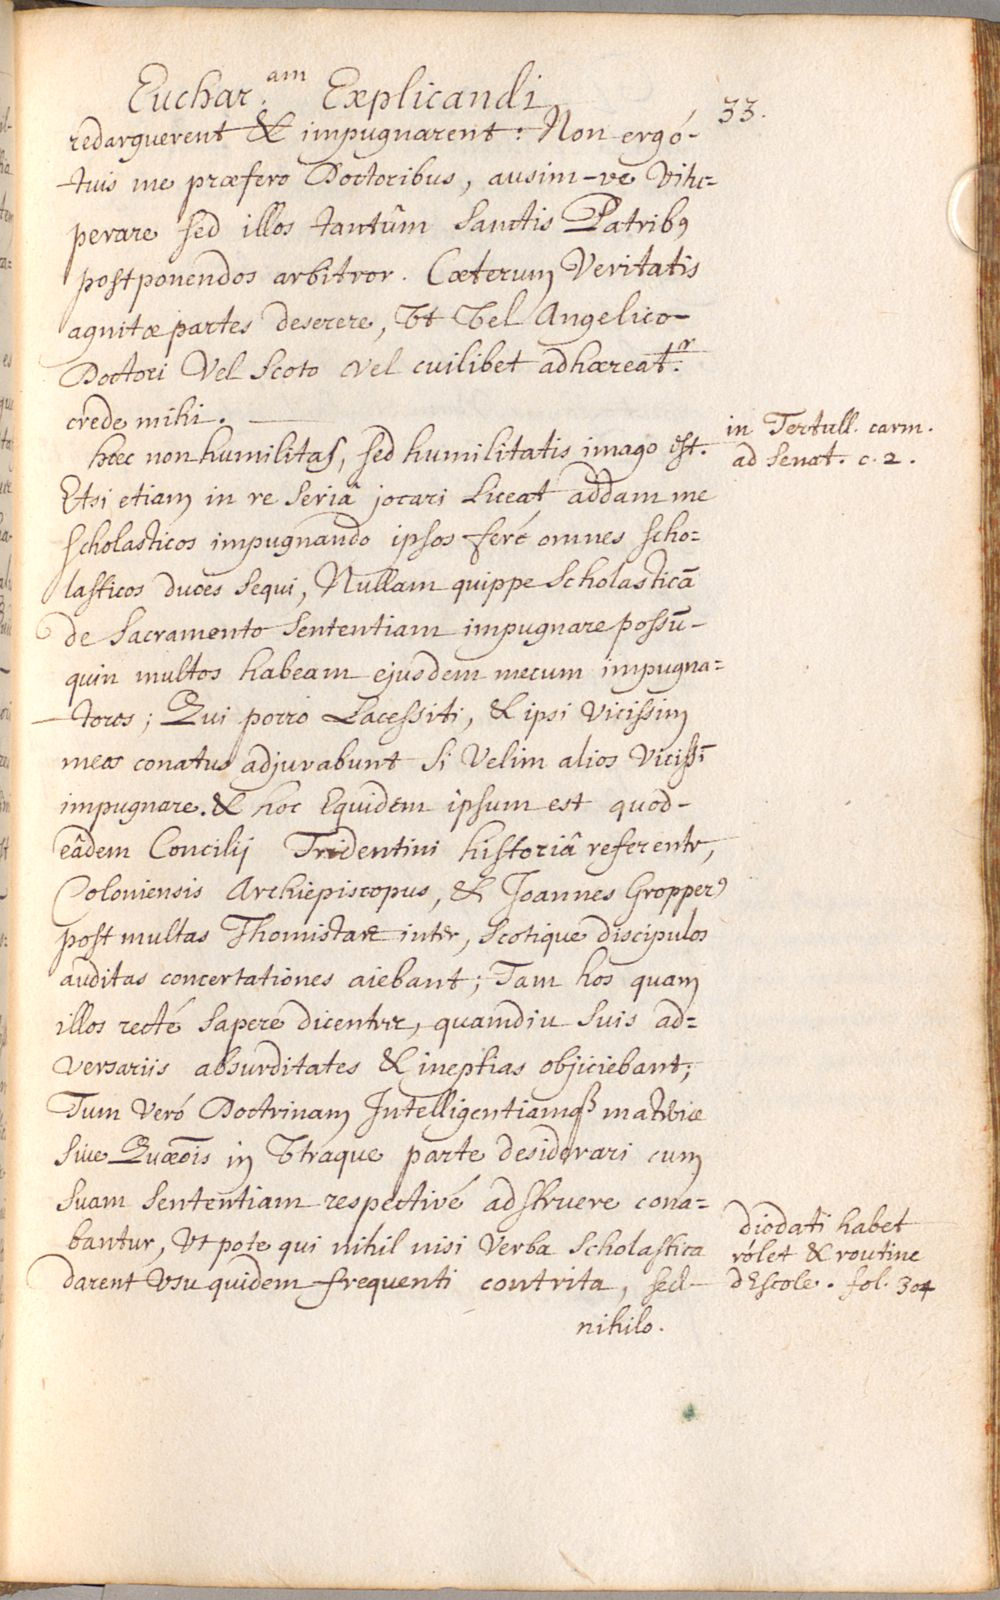 Euchar.am Explicandi
33.
redarguerent & impugnarent: Non ergó-
tuis me præfero Doctoribus, ausim-ve Vitu=
perare sed illos tantûm Sanctis Patribꝰ
postponendos arbitror. Cæterum Veritatis
agnitæ partes deserere, Vt Vel Angelico-
Doctori Vel Scoto Vel cuilibet adhæreat.r
crede mihi.
hæc non humilitas, sed humilitatis imago est.
in Tertull. carm.
ad Senat. c. 2.
Etsi etiam in re Seriâ jocari Liceat addam me
scholasticos impugnando ipsos feré omnes scho=
lasticos duces Sequi, Nullam quippe Scholasticā
de Sacramento Sententiam impugnare possū-
quin multos habeam ejusdem mecum impugna=
tores; Qui porro Lacessiti, & ipsi Vicissim
meos conatus adjuvabunt Si Velim alios Viciss̄i
impugnare. & hoc Equidem ipsum est quod-
eâdem Concilij Tridentini historiâ referente,
Coloniensis Archiepiscopus, & Joannes Gropperꝰ
post multas Thomistarꝫ inter, Scotique discipulos
auditas concertationes aiebant; Tam hos quam
illos recté Sapere dicenter, quamdiu Suis ad=
versariis absurditates & ineptias objiciebant;
Tum Veró Doctrinam Intelligentiamqꝫ materiæ
Sive Quæōis in Vtraque parte desiderari cum
Suam Sententiam respectivé adstruere cona=
bantur, Vt pote qui nihil nisi Verba Scholastica
darent Vsu quidem frequenti contrita, sed-
diodati habet
rólet & routine
dEscole. fol. 304
nihilo.